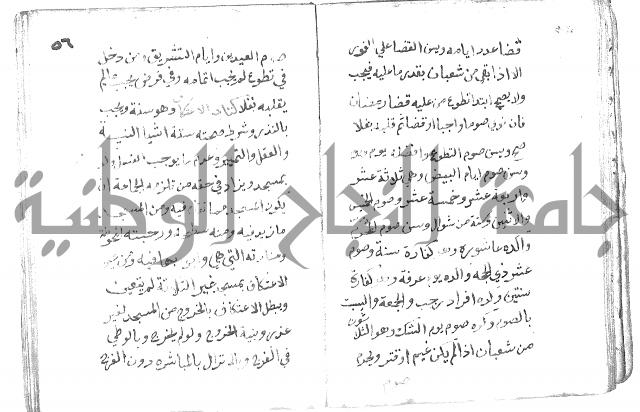 قضا عدد ايامه ويسن القضا على الفور
الا اذا بقي من شعبان بقدر ما عليه فيجب
ولا يصح ابتدا تطوع من عليه قضا رمضان
فان نوى صوما واجبا او قضا ثم قلبه نفلا
صح ويسن صوم التطوع وافضله يوم ويوم
وسن صوم ايام البيض وهي ثلاثة عشر
واربعة عشر وخمسة عشر وصوم الخميس
والاثنين وستة من شوال وسن صوم المحرم
واكده عاشورا وهو كفارة سنة وصوم
عشر ذي الحجة واكده يوم عرفة وهو كفارة
سنتين وكره افراد رجب والجمعة والسبت
بالصوم وكره صوم يوم الشك وهو الثلاثون
من شعبان اذا لم يكن غيم او قتر ويحرم
صوم
٥٦
صوم العيدين وايام التشريق ومن دخل
في تطوع لم يجب اتمامه وفي فرض يجب ما لم
يقلبه نفلا كتاب الاعتكاف وهو سنة ويجب
بالنذر وشرط صحته ستة اشيا النية
والعقل والتمييز وعدم ما يوجب الغسل
بمسجد ويزاد في حقه من تلزمه الجماعة ان
يكون المسجد مما تقام فيه ومن المسجد
ما زيد فيه ومنه سطحه ورحبته المحوطة
ومنارته التي هي او بابها فيه ومن
الاعتكاف بمسجد غير الثلاثة لم يتعين
ويبطل الاعتكاف بالخروج من المسجد لغير
عذر وبنية الخروج ولو لم يخرج وبالوطي
في الفرج وبالانزال بالمباشرة دون الفرج
جامعة النجاح الوطنية